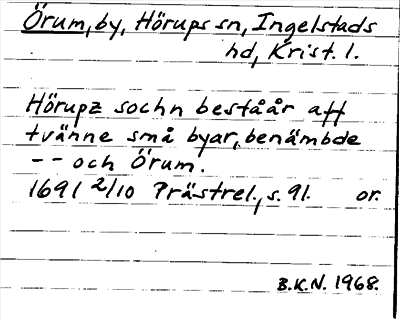 Örum, by, Hörups sn, Ingelstads
hd, Krist. l.
Hörupz sochn bestååר aff
tvänne små byar, benämbde
-- och Örum.
1691 2/10 Prästrel., s. 91. or.
B.K.N. 1968.